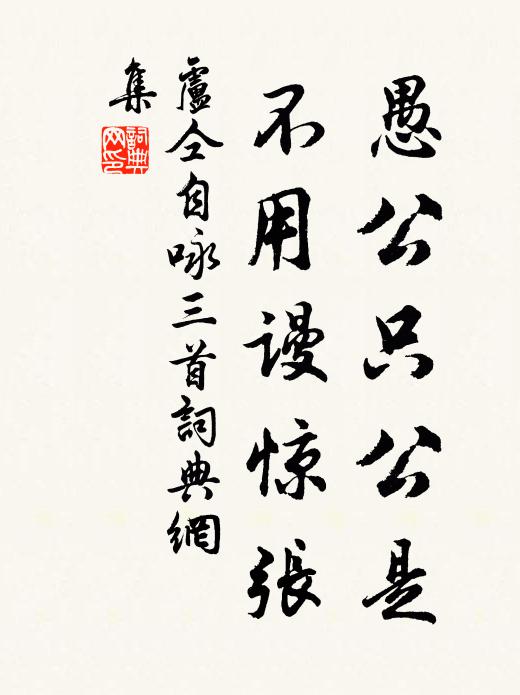 愚公只公是
不用谩惊張
盧仝自咏三首詞典網
集
詞典
网印